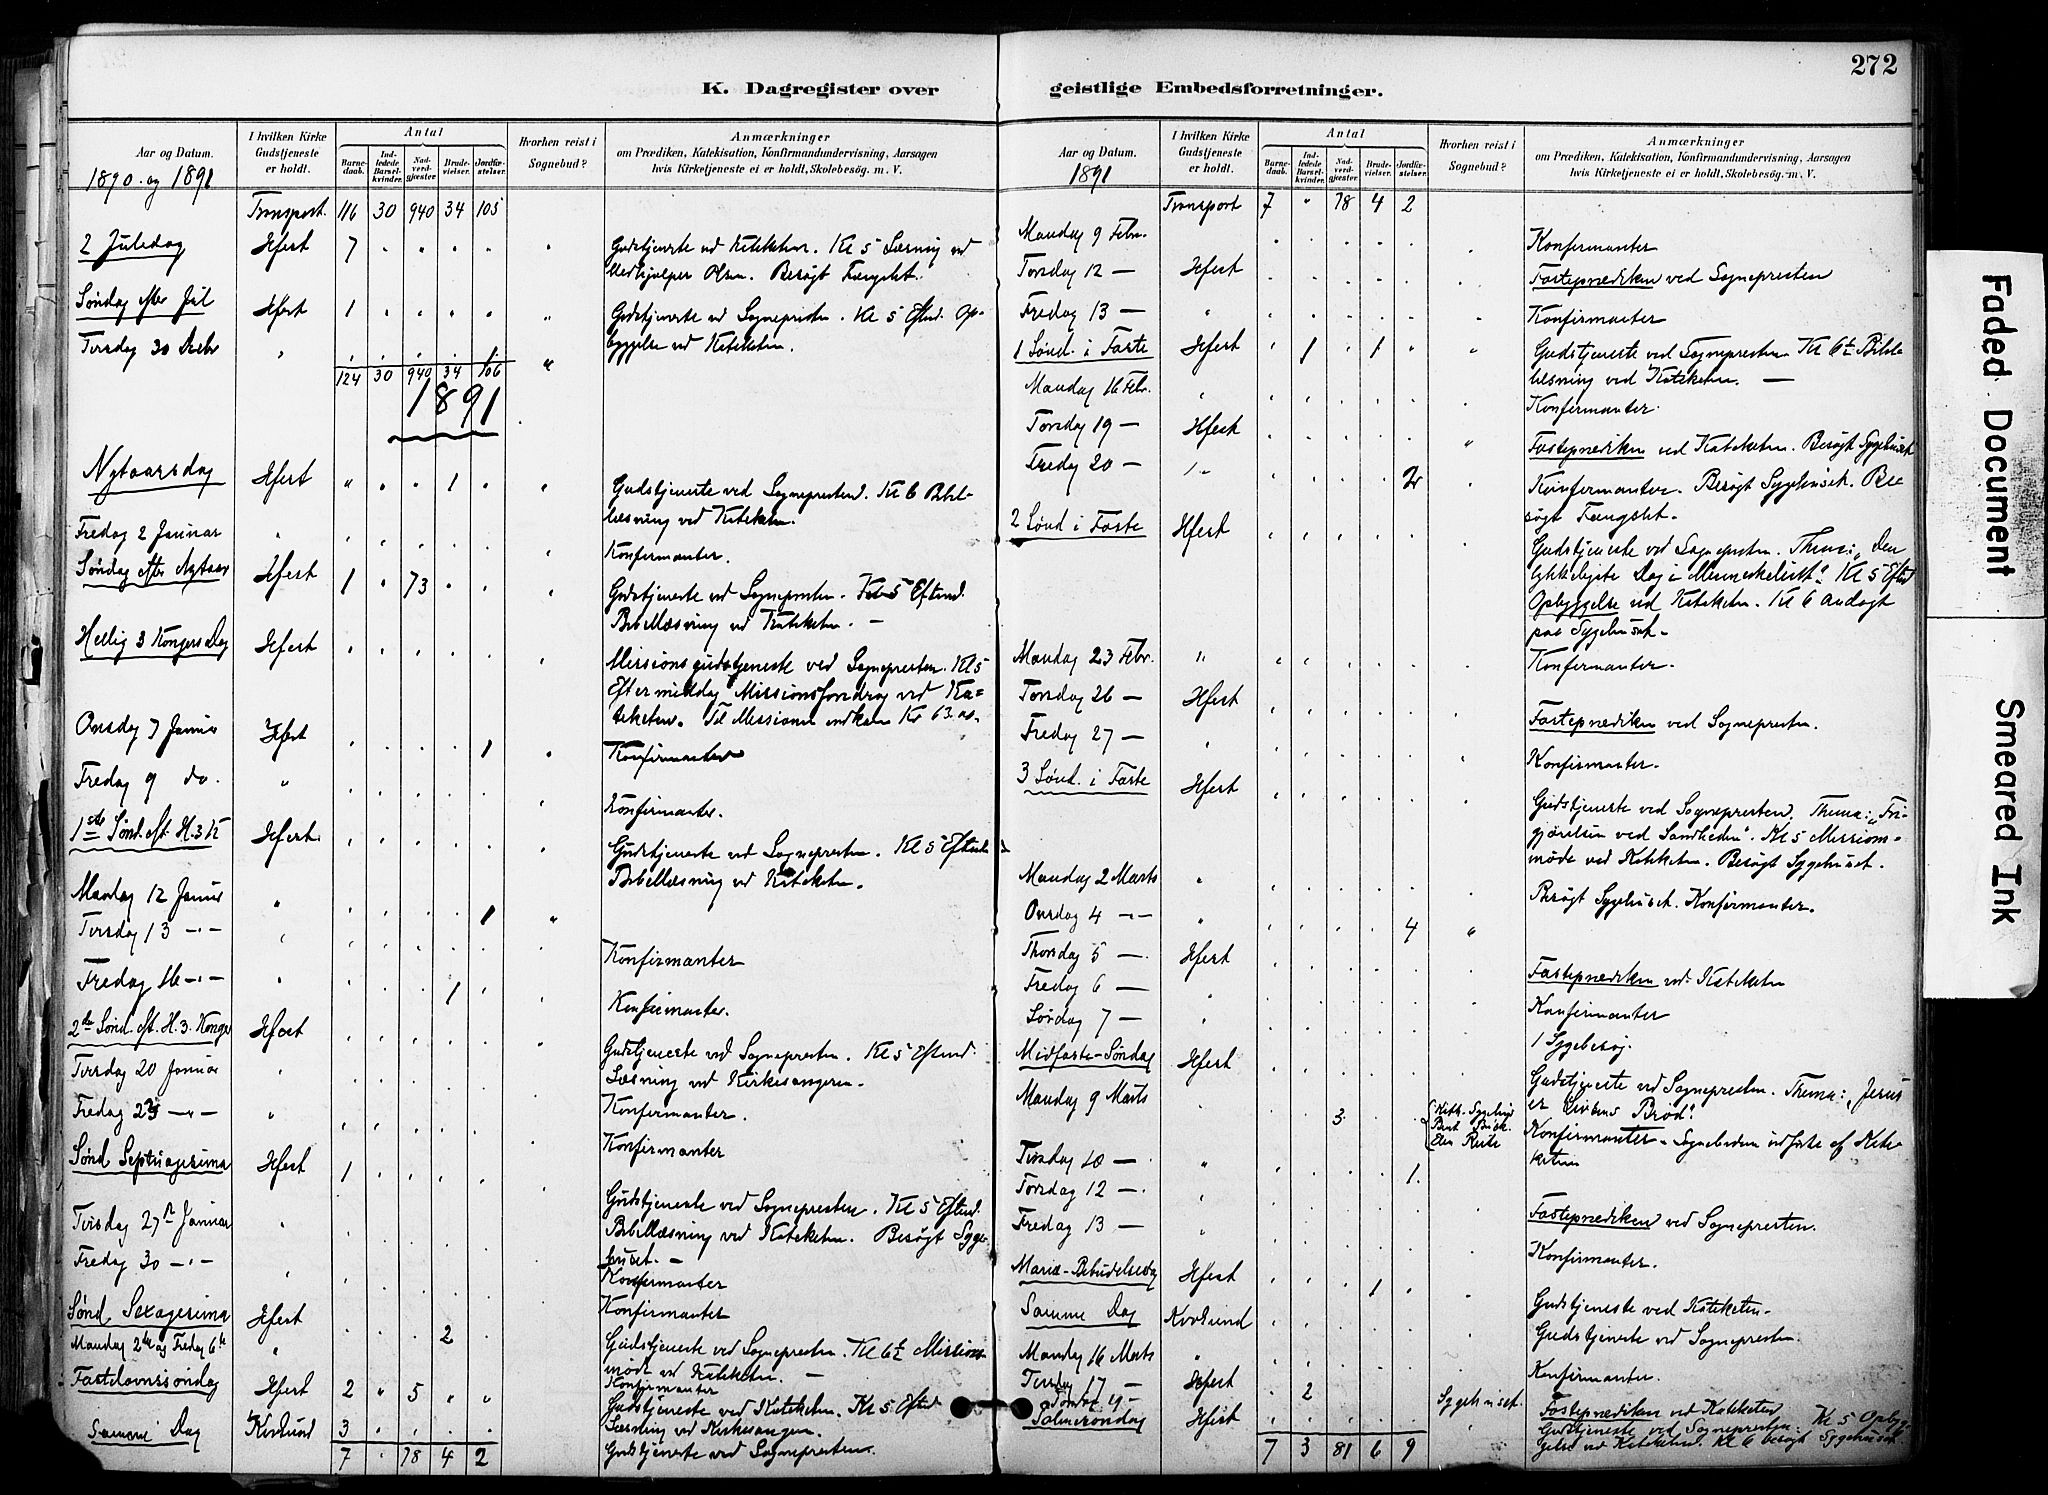 272
K. Dagregister over geistlige Embedsforretninger.
Aar og Datum.
1890 og 1891
I hvilken Kirke Gudstjeneste er holdt.
Antal
Barnedaab.
Indledede Barselkvinder.
Nadverdgjæster
Brudevielser.
Jordfæstelser.
Hvorhen reist i Sognebud?
Anmærkninger
om Prædiken, Katekisation, Konfirmandundervisning, Aarsagen
hvis Kirketjeneste ei er holdt, Skolebesøg. m. V.
Transport. 116 30 940 34 105
2 Juledag Hfest 7 " " " " " Gudstjeneste ved Kateketen. Kl 5 Læsning ved
Medhjælper Olsen. Besøgt Fængslet.
Søndag efter Jul Hfest 1 " " " " " Gudstjeneste ved Sognepresten. Kl 5 Eftmd. Op-
byggelse ved Kateketen.
Tirsdag 30 Decbr " . . . . 1 "
124 30 940 34 106
1891
Nytaarsdag Hfest " " " 1 " " Gudstjeneste ved Sognepresten. Kl 6 Bibel-
læsning ved Kateketen.
Fredag 2 Januar " Konfirmanter.
Søndag efter Nytaar Hfest 1 " 73 " " " Gudstjeneste ved Sognepresten. Kl 5 Eftmd.
Bibellæsning ved Kateketen. —
Hellig 3 Kongers Dag Hfest Missionsgudstjeneste ved Sognepresten. Kl 5
Eftermiddag Missionsforedrag ved Ka-
teketen. Til Missionen indkom Kr 63.00.
Onsdag 7 Januar Hfest 1 " Konfirmanter
Fredag 9 do. " Konfirmanter.
1ste Sønd. eft. H. 3 K Hfest. Gudstjeneste ved Sognepresten. Kl 5 Eftmd
Bibellæsning ved Kateketen.
Mandag 12 Januar " 1 "
Tirsdag 13 -"- " Konfirmanter
Fredag 16 -"- " 1 Konfirmanter.
2den Sønd. eft. H. 3. Konger Hfest Gudstjeneste ved Sognepresten. Kl 5 Eftmd.
Læsning ved Kirkesangeren.
Tirsdag 20 Januar " Konfirmanter.
Fredag 23 -"- " Konfirmanter
Sønd Septuagesima Hfest 1 Gudstjeneste ved Sognepresten. Kl 5 Eftmd.
Bibellæsning ved Kateketen. Besøgt Syge-
huset. —
Tirsdag 27 Januar " Konfirmanter
Fredag 30 -"- " Konfirmanter
Sønd Sexagesima Hfest 2 Gudstjeneste ved Sognepresten. Kl 6½ Missions-
møde ved Kateketen. —
Mandag 2den og Fredag 6te " Konfirmanter
Fastelavnssøndag Hfest 2 " 5 " " Gudstjeneste ved Kateketen. Kl 5 Eftmd
Læsning ved Kirkesangeren.
Samme Dag Kvalsund 3 Gudstjeneste ved Sognepresten.
7 " 78 4 2
Aar og Datum.
1891
I hvilken Kirke Gudstjeneste er holdt.
Antal
Barnedaab.
Indledede Barselkvinder.
Nadverdgjæster
Brudevielser.
Jordfæstelser.
Hvorhen reist i Sognebud?
Anmærkninger
om Prædiken, Katekisation, Konfirmandundervisning, Aarsagen
hvis Kirketjeneste ei er holdt, Skolebesøg. m. V.
Transport 7 " 78 4 2
Mandag 9 Febr. Konfirmanter
Torsdag 12 — Hfest Fasteprædiken ved Sognepresten
Fredag 13 — " Konfirmanter
1 Sønd. i Faste Hfest 1 1 " Gudstjeneste ved Sognepresten Kl 6½ Bibel-
læsning ved Kateketen. —
Mandag 16 Febr. " Konfirmanter.
Torsdag 19 — Hfest " Fasteprædiken ved Kateketen. Besøgt Sygehuset
Fredag 20 — " 2 Konfirmanter. Besøgt Sygehuset. Be-
søgt Fængslet.
2 Sønd i Faste Hfest Gudstjeneste ved Sognepresten. Thema: "Den
lykkeligste Dag i Menneskelivet". Kl 5 Eftmd
Opbyggelse ved Kateketen. Kl 6 Andagt
paa Sygehuset.
Mandag 23 Febr. " Konfirmanter.
Torsdag 26 — Hfest Fasteprædiken ved Sognepresten.
Fredag 27 — " Konfirmanter.
3 Sønd. i Faste Hfest Gudstjeneste ved Sognepresten. Thema: "Fri-
gjørelsen ved Sandheden". Kl 5 Missions-
møde ved Kateketen. Besøgt Sygehuset.
Mandag 2 Marts " Besøgt Sygehuset. Konfirmanter.
Onsdag 4 -"- " 4 "
Thorsdag 5 — Hfest Fasteprædiken ved Kateketen
Fredag 6 — " Konfirmanter
Lørdag 7 — " 1 Sygebesøg.
Midfaste-Søndag Hfest Gudstjeneste ved Sognepresten. Thema: "Jesus
er Livsens Brød".
Mandag 9 Marts " 3 Konfirmanter. Sognebudene udførte af Kate-
keten
Tirsdag 10 — " 1.
Torsdag 12 — " Fasteprædiken ved Sognepresten.
Fredag 13 — " Konfirmanter.
Mariæ-Bebudelsesdag Hfest 1 Gudstjeneste ved Kateketen.
Samme Dag Kvalsund Gudstjeneste ved Sognepresten.
Mandag 16 Marts " Konfirmanter.
Tirsdag 17 — Hfest 2 Sygehuset.
Torsdag 19 — Fasteprædiken ved Kateketen
Palmesøndag Hfest Gudstjeneste ved Sognepresten. Kl 5 Opbyg-
gelse ved Kateketen. Kl 6 besøgt Sygehuset.
7 3 81 6 9
Faded Document
Smeared Ink